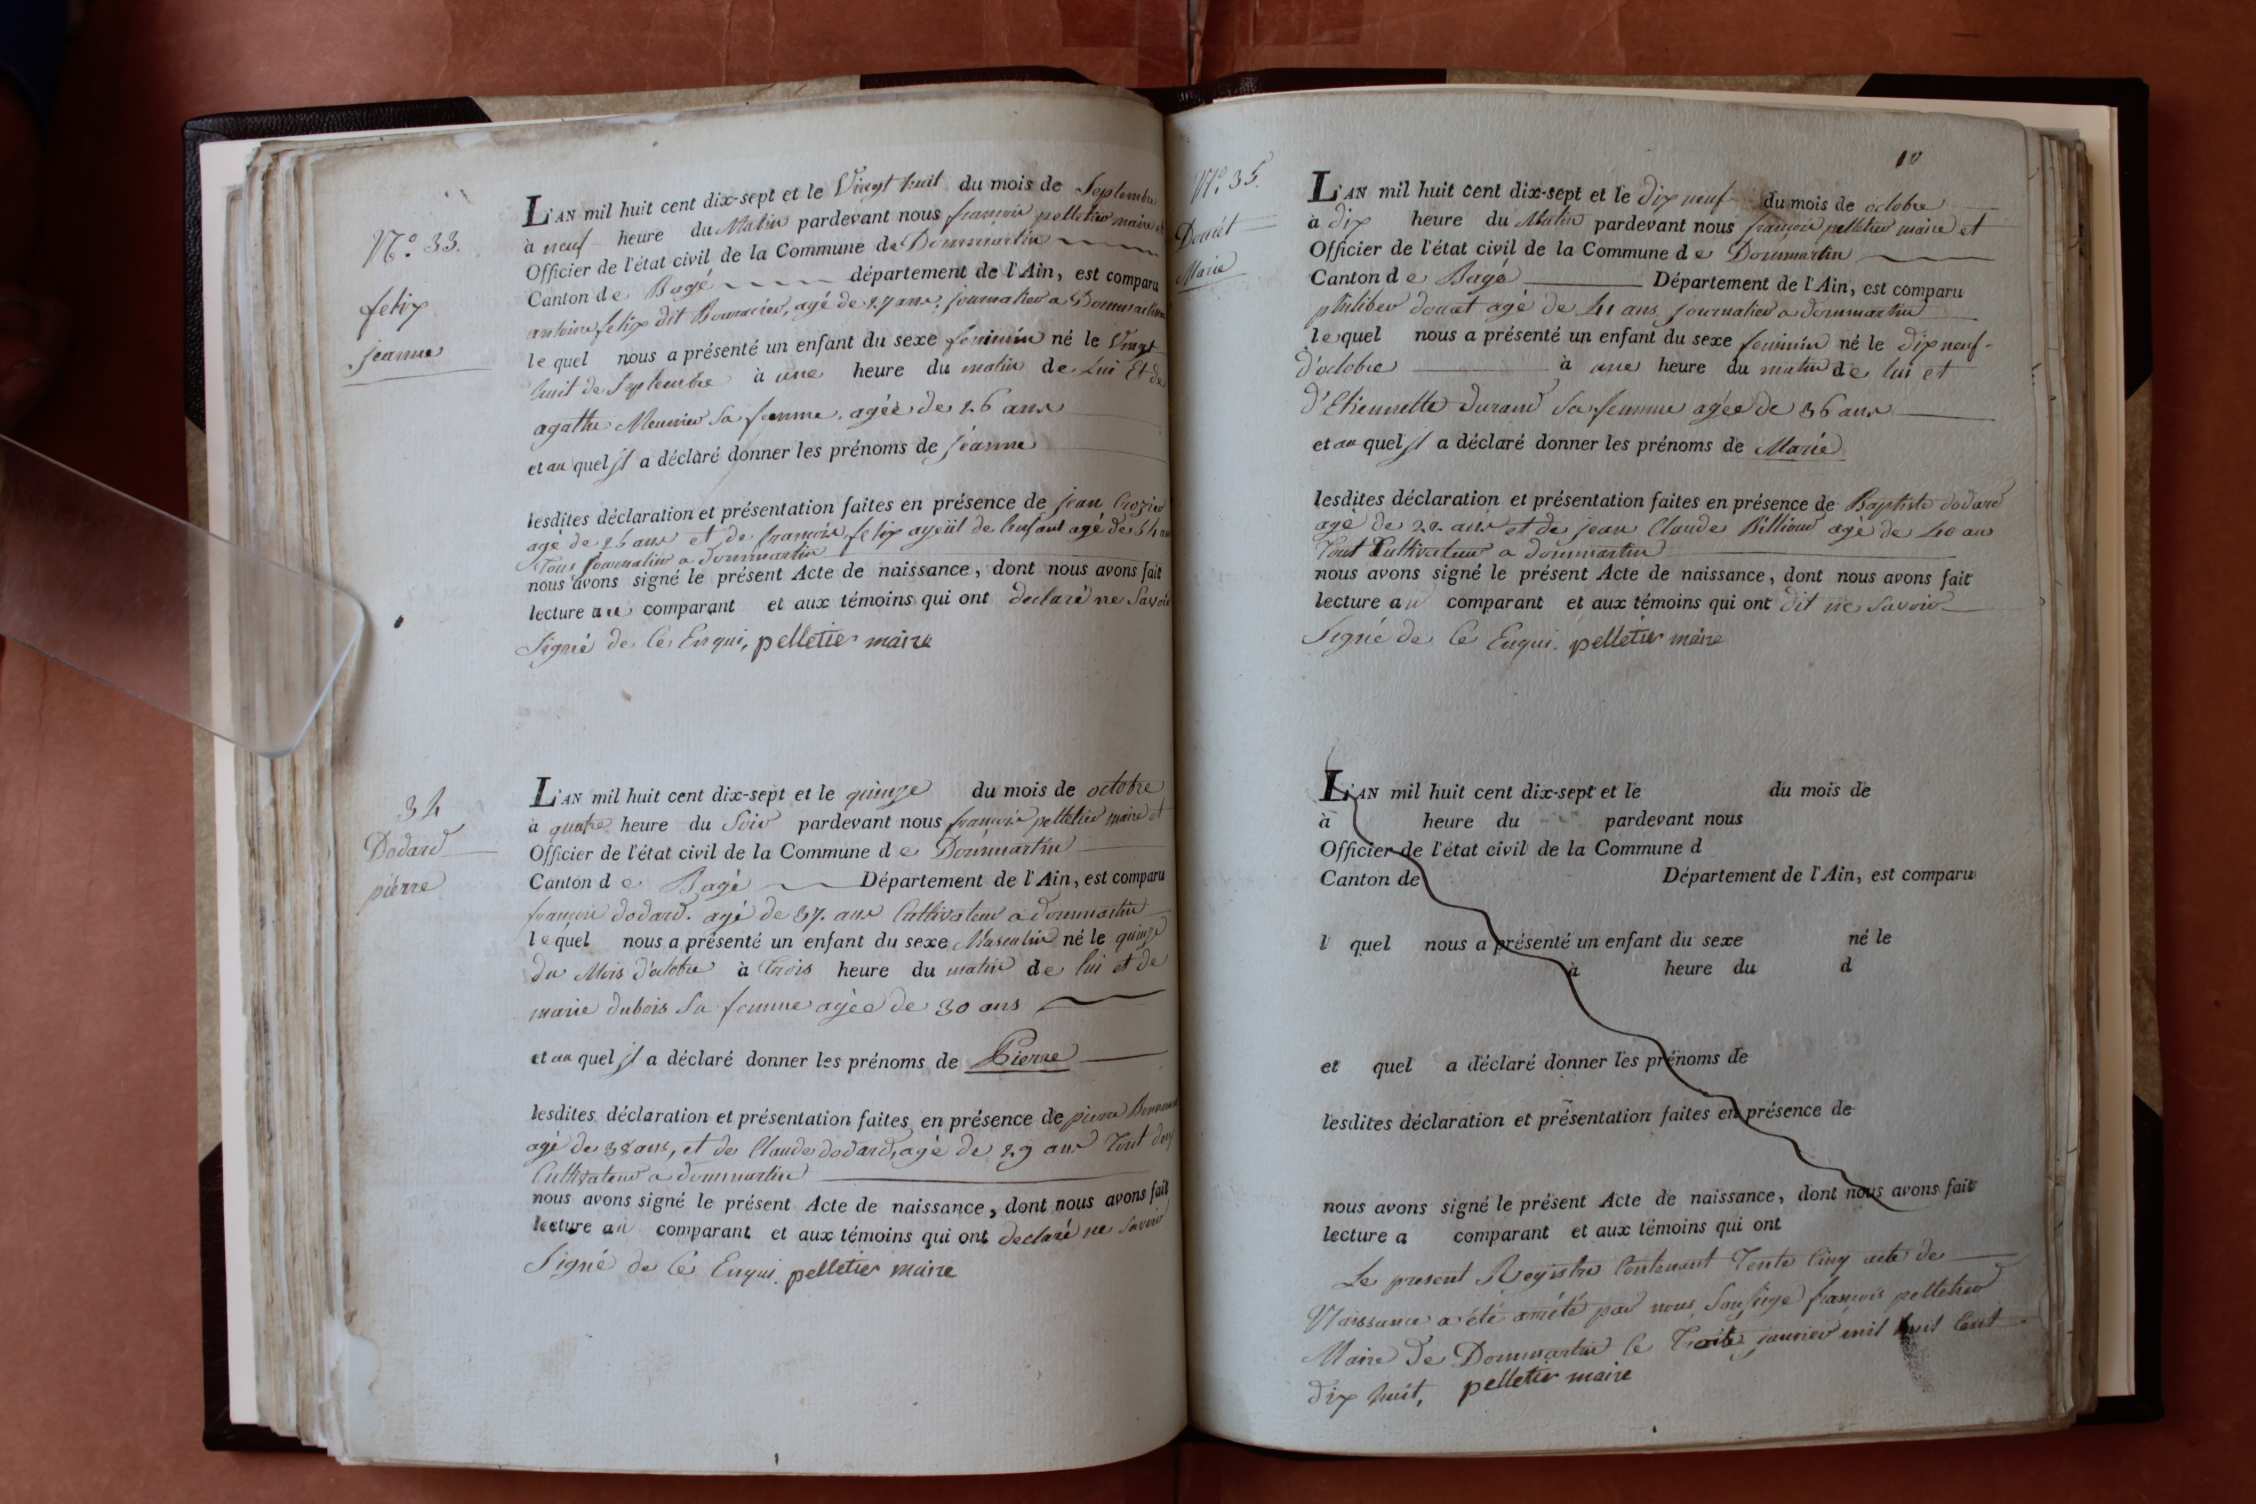 N.° 33.
felix
jeanne
L'AN mil huit cent dix-sept et le Vingt huit du mois de Septembre
à neuf heure du Matin pardevant nous françois pelletier maire et
Officier de l'état civil de la Commune de Dommartin
Canton de Bagé département de l'Ain, est comparu
antoine felix dit agé de 27 ans, journalier a Dommartin
le quel nous a présenté un enfant du sexe feminin né le Vingt
huit de Septembre à une heure du matin de Lui Et de
agathe Meunier Sa femme, agée de 26 ans
et au quel jl a déclaré donner les prénoms de jeanne
lesdites déclaration et présentation faites en présence de jean Crozier
agé de 26 ans et de francois felix ayeül de lenfant agé de 54 ans
Tous journalier a dommartin
nous avons signé le présent Acte de naissance, dont nous avons fait
lecture au comparant et aux témoins qui ont declaré ne Savoir
Signé de Ce Enqui, pelletier maire
34
Dodard
pierre
L'AN mil huit cent dix-sept et le quinze du mois de octobre
à quatre heure du Soir pardevant nous françois pelletier maire et
Officier de l'état civil de la Commune de Dommartin
Canton de Bagé Département de l'Ain, est comparu
françois dodard. agé de 37. ans Cultivateur a dommartin
le quel nous a présenté un enfant du sexe Masculin né le quinze
du Mois d'octobre à trois heure du matin de lui et de
marie dubois Sa femme agée de 30 ans
et au quel jl a déclaré donner les prénoms de Pierre
lesdites déclaration et présentation faites en présence de pierre
agé de 38 ans, et de Claude dodard, agé de 29 ans Tout deux
Cultivateur a dommartin
nous avons signé le présent Acte de naissance, dont nous avons fait
lecture au comparant et aux témoins qui ont declaré ne Savoir
Signé de Ce Enqui. pelletier maire
10
N.° 35.
Douét
Marie
L'AN mil huit cent dix-sept et le dix neuf du mois de octobre
à dix heure du Matin pardevant nous françois pelletier maire et
Officier de l'état civil de la Commune de Dommartin
Canton de Bagé Département de l'Ain, est comparu
philiber douét agé de 41 ans journalier a dommartin
le quel nous a présenté un enfant du sexe feminin né le dix neuf
d'octobre à une heure du matin de lui et
d'Etiennette durand Sa femme agée de 36 ans
et au quel jl a déclaré donner les prénoms de Marie
lesdites déclaration et présentation faites en présence de Baptiste dodard
agé de 22. ans et de jean Claude Billioud agé de 40 ans
Tout Cultivateur a dommartin
nous avons signé le présent Acte de naissance, dont nous avons fait
lecture au comparant et aux témoins qui ont dit ne Savoir
Signé de Ce Enqui. pelletier maire
L'AN mil huit cent dix-sept et le du mois de
à heure du pardevant nous
Officier de l'état civil de la Commune d
Canton de Département de l'Ain, est comparu
l quel nous a présenté un enfant du sexe né le
à heure du d
et quel a déclaré donner les prénoms de
lesdites déclaration et présentation faites en présence de
nous avons signé le présent Acte de naissance, dont nous avons fait
lecture a comparant et aux témoins qui ont
Le present Registre Contenant Tente Cinq acte de
Naissance a été arrété par nous Sousigé françois pelletier
Maire de Dommartin le janvier mil huit Cent
dix huit, pelletier maire